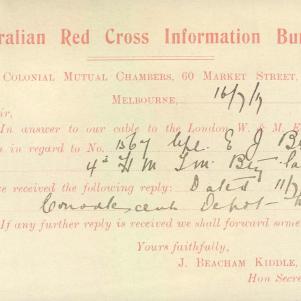 ralian Red Cross Information Bu
COLONIAL MUTUAL CHAMBERS, 60 MARKET STREET,
MELBOURNE, 16/7/17
ir,
In answer to our cable to the London W. & M. F
n in regard to No. 1567 E J
4th H M T.M. Bty
e received the following reply: Dated 11/7
Convalescent Depot
If any further reply is received we shall forward some
Yours faithfully,
J. BEACHAM KIDDLE,
Hon Secre